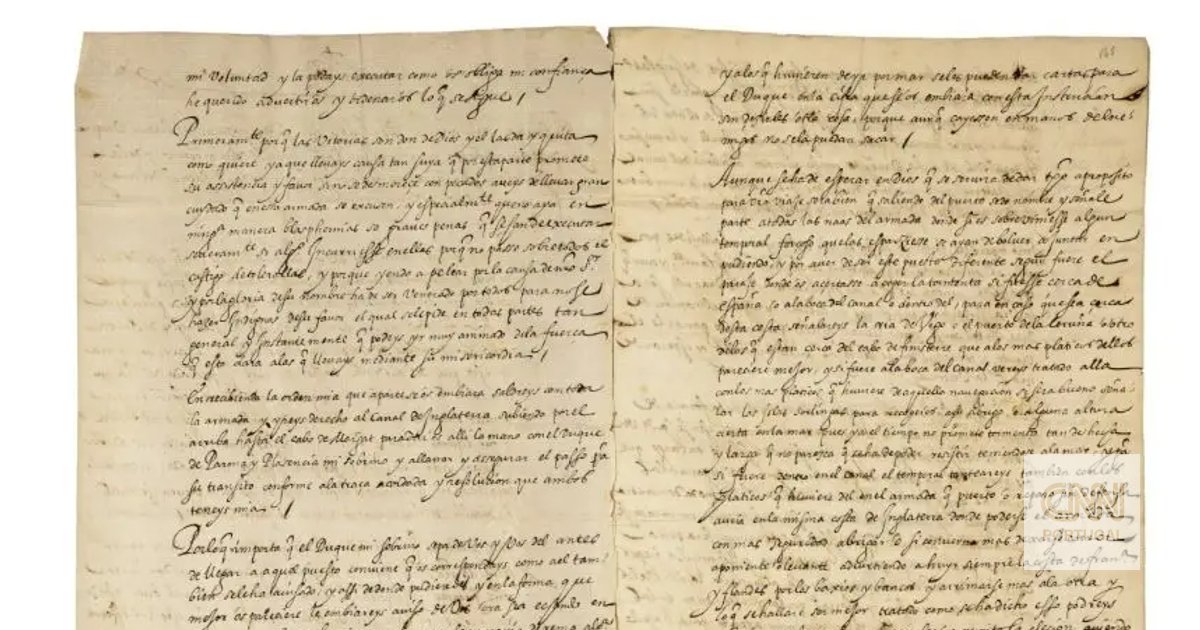 mi voluntad y la podays executar como es obligo mi confiança
he querido advertiros y ordenaros lo q se sigue /
Primeramte porq las Vitorias son don de Dios y el las da y quita
como quiere y a que llevays causa tan suya q por esta parte promete
su asistencia y favor si no se desmerece con pecados aveys de llevar gran
cuydado q en esta armada se escusen, y especialmte quero aya en
ning.a manera blasphemias so graves penas q se han de executar
severamte si alg.o incurriesse en ellas porq no passe sobre todos el
castigo de tolerallas, y porque yendo a pelear por la causa de nro Sr
y por la gloria de su nombre ha de ser Venerado por todos para no se
hazer Indignos de su favor el qual se le pide en todas partes tan
general y Instantemente q podeys yr muy animado dela fuerça
q esto dara alos q llevays mediante su misericordia /
En recibiendo la orden mia que aparte se os embiara saldreys con toda
la armada y yreys derecho al Canal de Inglaterra subiendo por el
arriba hasta el cabo de Morgat para daros alli la mano con el Duque
de Parma y Plasencia mi sobrino y allanar y assegurar el passo pa
su transito conforme ala traça acordada y resolucion que ambos
teneys mia /
Porloq importa q el Duque mi sobrino sepa de Vos y Vos del antes
de llegar a aquel puesto conviene q os correspondays como a el tam-
bien se le ha avisado, y assi dende q pudieredes y en la forma que
mejor os pareciere le embiareys aviso de
165
y alos q huvieren de yr por mar se les pueden dar cartas para
el Duque en la cifra que se os embiara con esta Instrucion
sin desirles otra cosa, porque aunq cayessen en manos de los ene-
migos no se la puedan sacar /
Aunque se ha de esperar en Dios q se servira de dar tpo a proposito
para este viaje sera bien q saliendo del puerto se de nombre y señale
parte a todas las naos del armada donde si os sobreviniesse algun
temporal forçoso que las esparziesse se ayan de bolver a juntar en
pudiendo, y por aver de ser este puesto diferente segun fuere el
paraje donde os acertasse a coger la tormenta si fuesse cerca de
españa o ala boca del canal o dentro del, para en caso que sea cerca
desta costa señalareys la ria de Vigo o el puerto dela Coruña o otro
delos q estan cerca del cabo de finisterre que alos mas platicos dellos
pareciere mejor, y si fuere ala boca del Canal vereys tratado alla
con los mas platicos q huviere de aquella navegacion si sera bueno seña-
lar las Islas Sorlingas para recogeros a su abrigo o alguna altura
cierta en la mar pues ya el tiempo no promete tormenta tan deshecha
y larga q no parezca q se ha de poder resistir
si fuere dentro en el canal el temporal tratareys tambien con los
platicos q huviere del en el armada q puerto o reparo
avria en la misma costa de Inglaterra donde poderse
con mas seguridad abrigar o si converna mas
a poniente o levante advirtiendo a huyr siempre la costa de fran.a
y flandes por los baxios y bancos y arrimarse mas ala otra y
loq se hallare ser mejor tratado como se ha dicho esso podreys
CNN
PORTUGAL